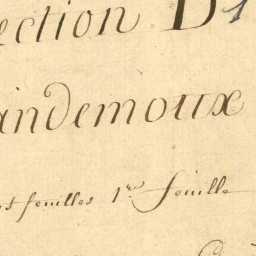 ection D1
andemoux
feuilles 1re feuille